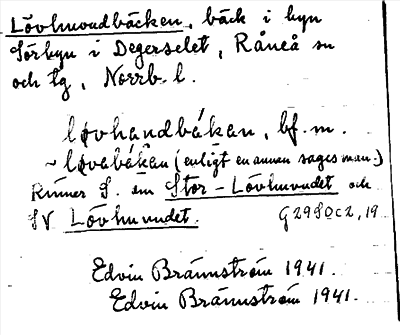 Lövhuvudbäcken, bäck i byn
Sörbyn i Degerselet, Råneå sn
och tg, Norrb. l.
løvhandbä́kan, bf. m.
~ løvabä́kan (enligt en annan sagesman.)
Rinner S. om Stor-Lövhuvudet och
SV Lövhuvudet. G29SOc2,19
Edvin Brännström 1941.
Edvin Brännström 1941.